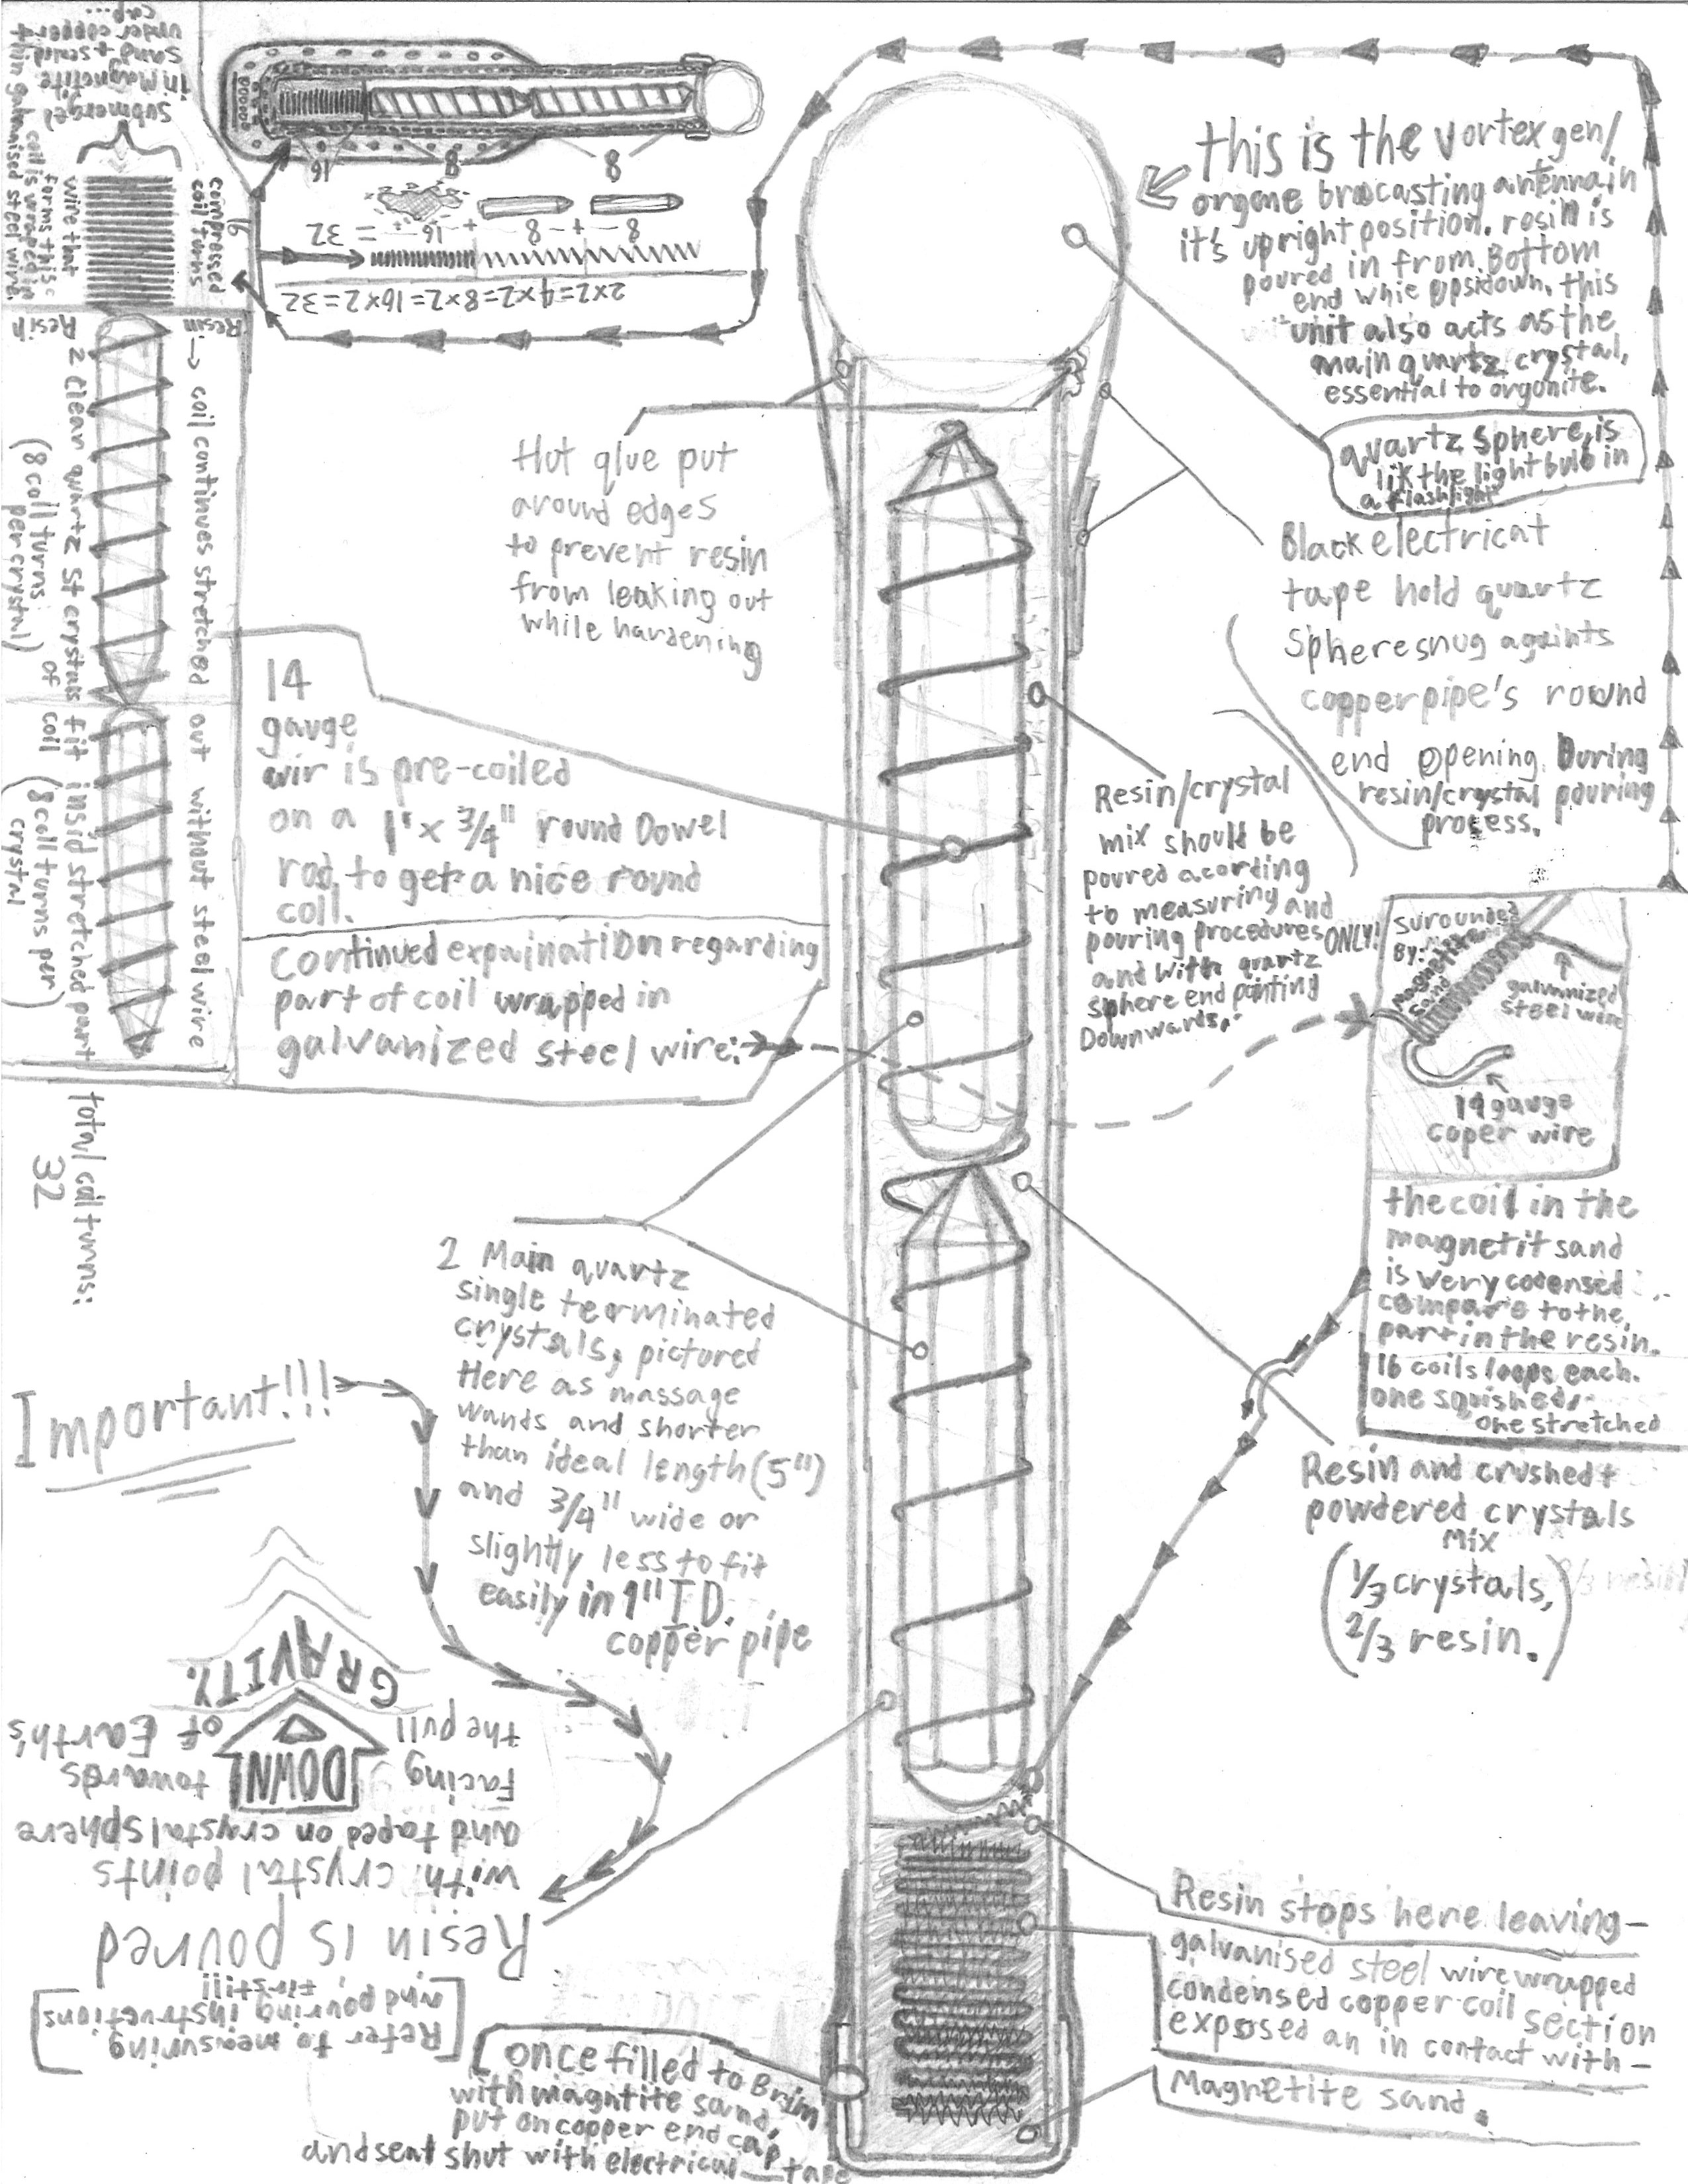 this is the vortex gen/
orgone brocasting antenna in
it's upright position. resin is
poured in from Bottom
end whie upsidown. this
unit also acts as the
main quartz crystal,
essential to orgonite.
quartz sphere, is
lik the light bulb in
a flashlight
Black electrical
tape hold quartz
Sphere snug againts
copper pipe's round
end opening. During
resin/crystal pouring
process.
Hot glue put
around edges
to prevent resin
from leaking out
while hardening
14
gauge
wir is pre-coiled
on a 1" x 3/4" round Dowel
rod, to get a nice round
coil.
Continued expaination regarding
part of coil wrapped in
galvanized steel wire:
Resin/crystal
mix should be
poured acording
to measuring and
pouring procedures ONLY!
and with quartz
sphere end pointing
Downwards.
Surounded
By: magnetite
sand
galvanized
steel wire
14 gauge
coper wire
the coil in the
magnetit sand
is very codensed
compare to the,
part in the resin.
16 coils loops each.
one squished,
one stretched
Resin and crushed +
powdered crystals
mix
(1/3 crystals,
2/3 resin.)
2 Main quartz
single terminated
crystals, pictured
Here as massage
wands and shorter
than ideal length (5")
and 3/4" wide or
slightly less to fit
easily in 1" I.D.
copper pipe
Important!!!
Resin stops here leaving-
galvanised steel wire wrapped
condensed copper coil section
exposed an in contact with-
Magnetite sand.
once filled to Brim
with magntite sand,
put on copper end cap
and seal shut with electrical tape
[Refer to measuring
and pouring instructions
first!!!]
Resin is poured
with crystal points
and taped on crystal sphere
facing DOWN towards
the pull of Earth's
GRAVITY.
2x2=4x2=8x2=16x2=32
8 + 8 + 16 = 32
8
8
16
16
compressed
coil turns
wire that
forms this
coil is wraped in
thin galvanised steel wire.
submerged
in Magnetite
sand + sealed
under copper
cap...
Resin
Resin → coil continues stretched out without steel wire
2 Clean quartz st crystals fit insid stretched part
of coil
(8 coil turns
per crystal)
(8 coil turns per
crystal)
total coil turns:
32